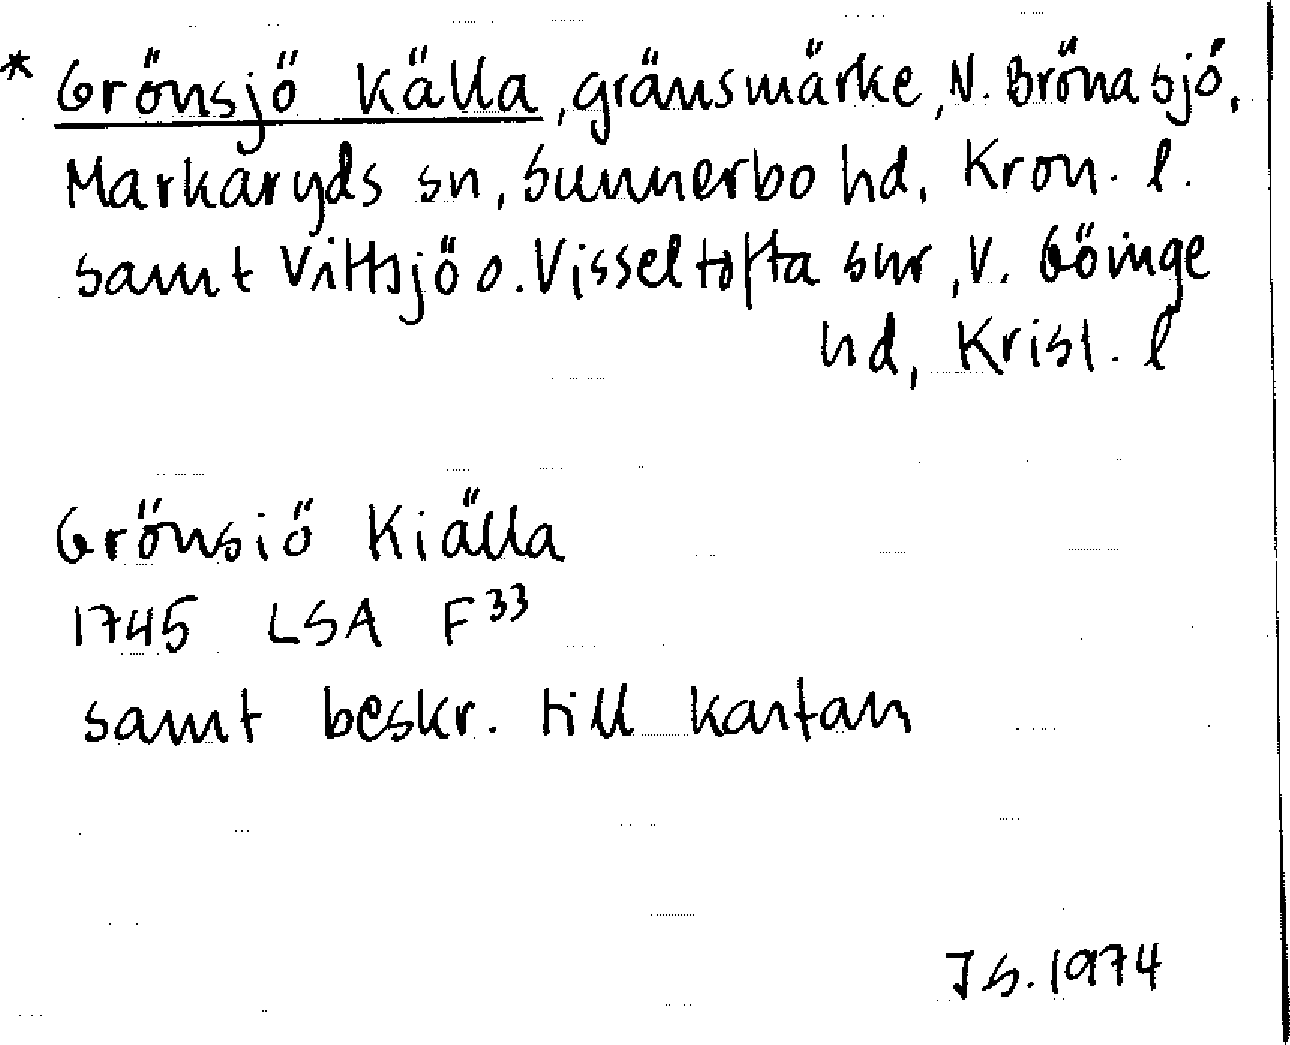 * Grönsjö Källa, gränsmärke, N. Brönasjö,
Markaryds sn, Sunnerbo hd, Kron. l.
samt Vittsjö o. Visseltofta snr, V. Göinge
hd, Krist. l
Grönsiö Kiälla
1745 LSA F 33
samt beskr. till kartan
IS. 1974